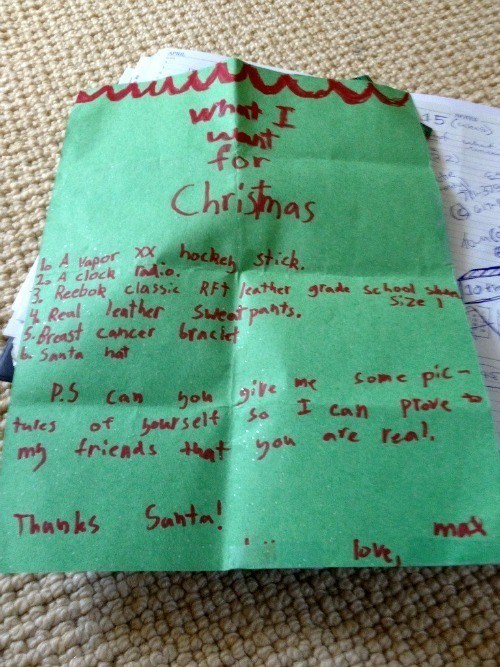 What I
want
for
Christmas
1. A Vapor XX hockey stick.
2. A clock radio.
3. Reebok classic RFT leather grade school shoe
size 1
4. Real leather sweatpants.
5. Breast cancer braclet
6. Santa hat
P.S can you give me some pic-
tures of yourself so I can prove to
my friends that you are real.
Thanks Santa!
love, max